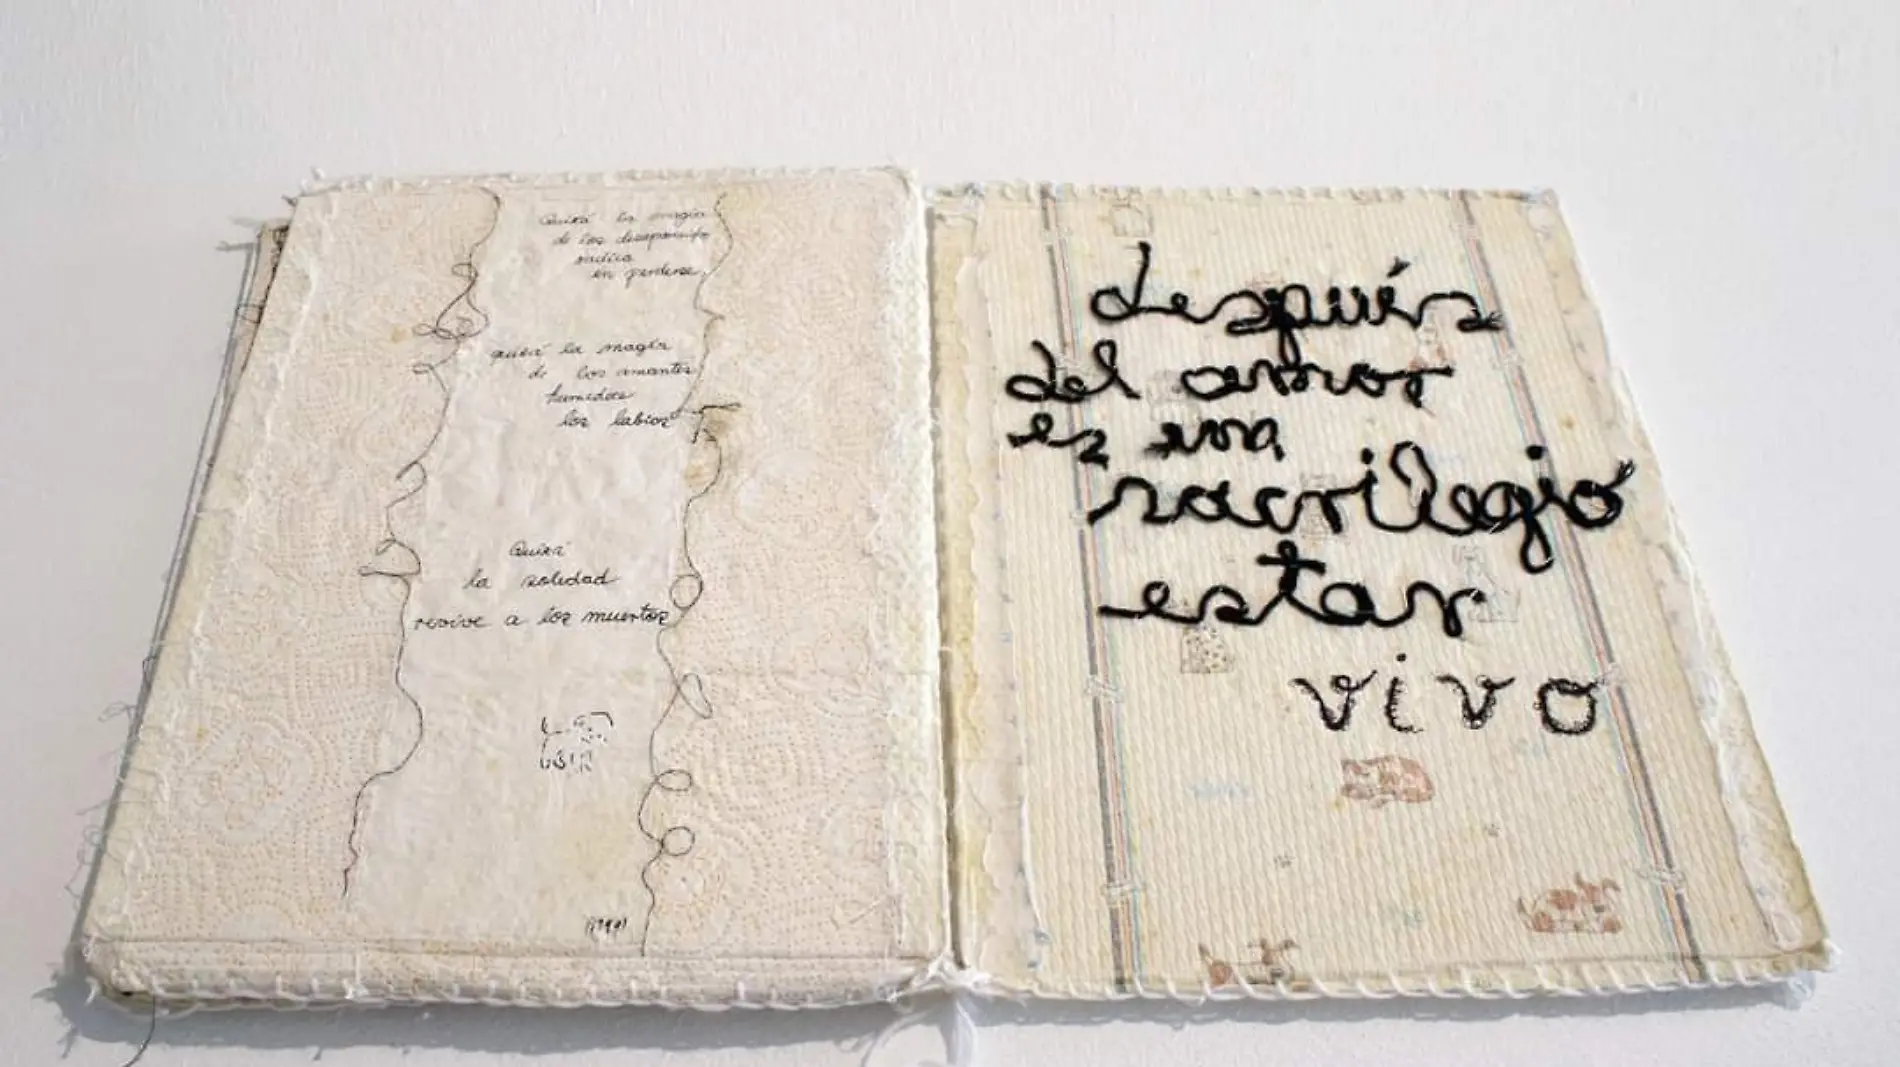 Quizá la magia
de los desaparecidos
radica
en perderse,
quizá la magia
de los amantes
humedece
los labios
Quizá
la soledad
revive a los muertos
después
del amor
es una
sacrilegio
estar
vivo